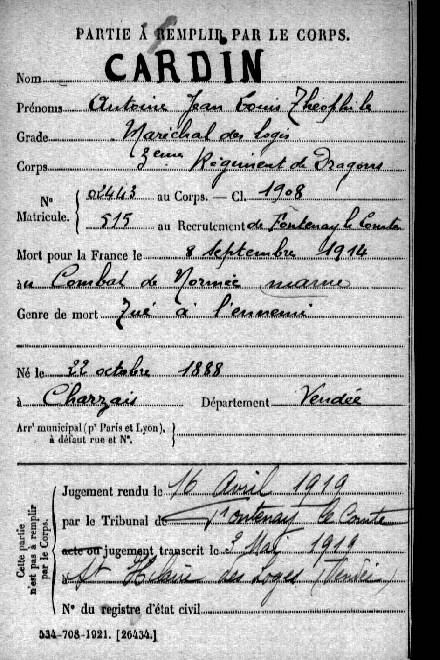 PARTIE À REMPLIR PAR LE CORPS.
Nom CARDIN
Prénoms Antoine Jean Louis Théophile
Grade Maréchal des logis
Corps 3eme Régiment de Dragons
N° Matricule. { 02443 au Corps. — Cl. 1908
515 au Recrutement de Fontenay le Comte
Mort pour la France le 8 septembre 1914
au Combat de Normée marne
Genre de mort Tué à l'ennemi
Né le 22 octobre 1888
à Charzais Département Vendée
Arrt municipal (pr Paris et Lyon), à défaut rue et N°. }
Cette partie n'est pas à remplir par le Corps.
Jugement rendu le 16 Avril 1919
par le Tribunal de Fontenay le Comte
acte ou jugement transcrit le Mai 1919
à St Hilaire des Loges (Vendée)
N° du registre d'état civil
534-708-1921. [26434.]